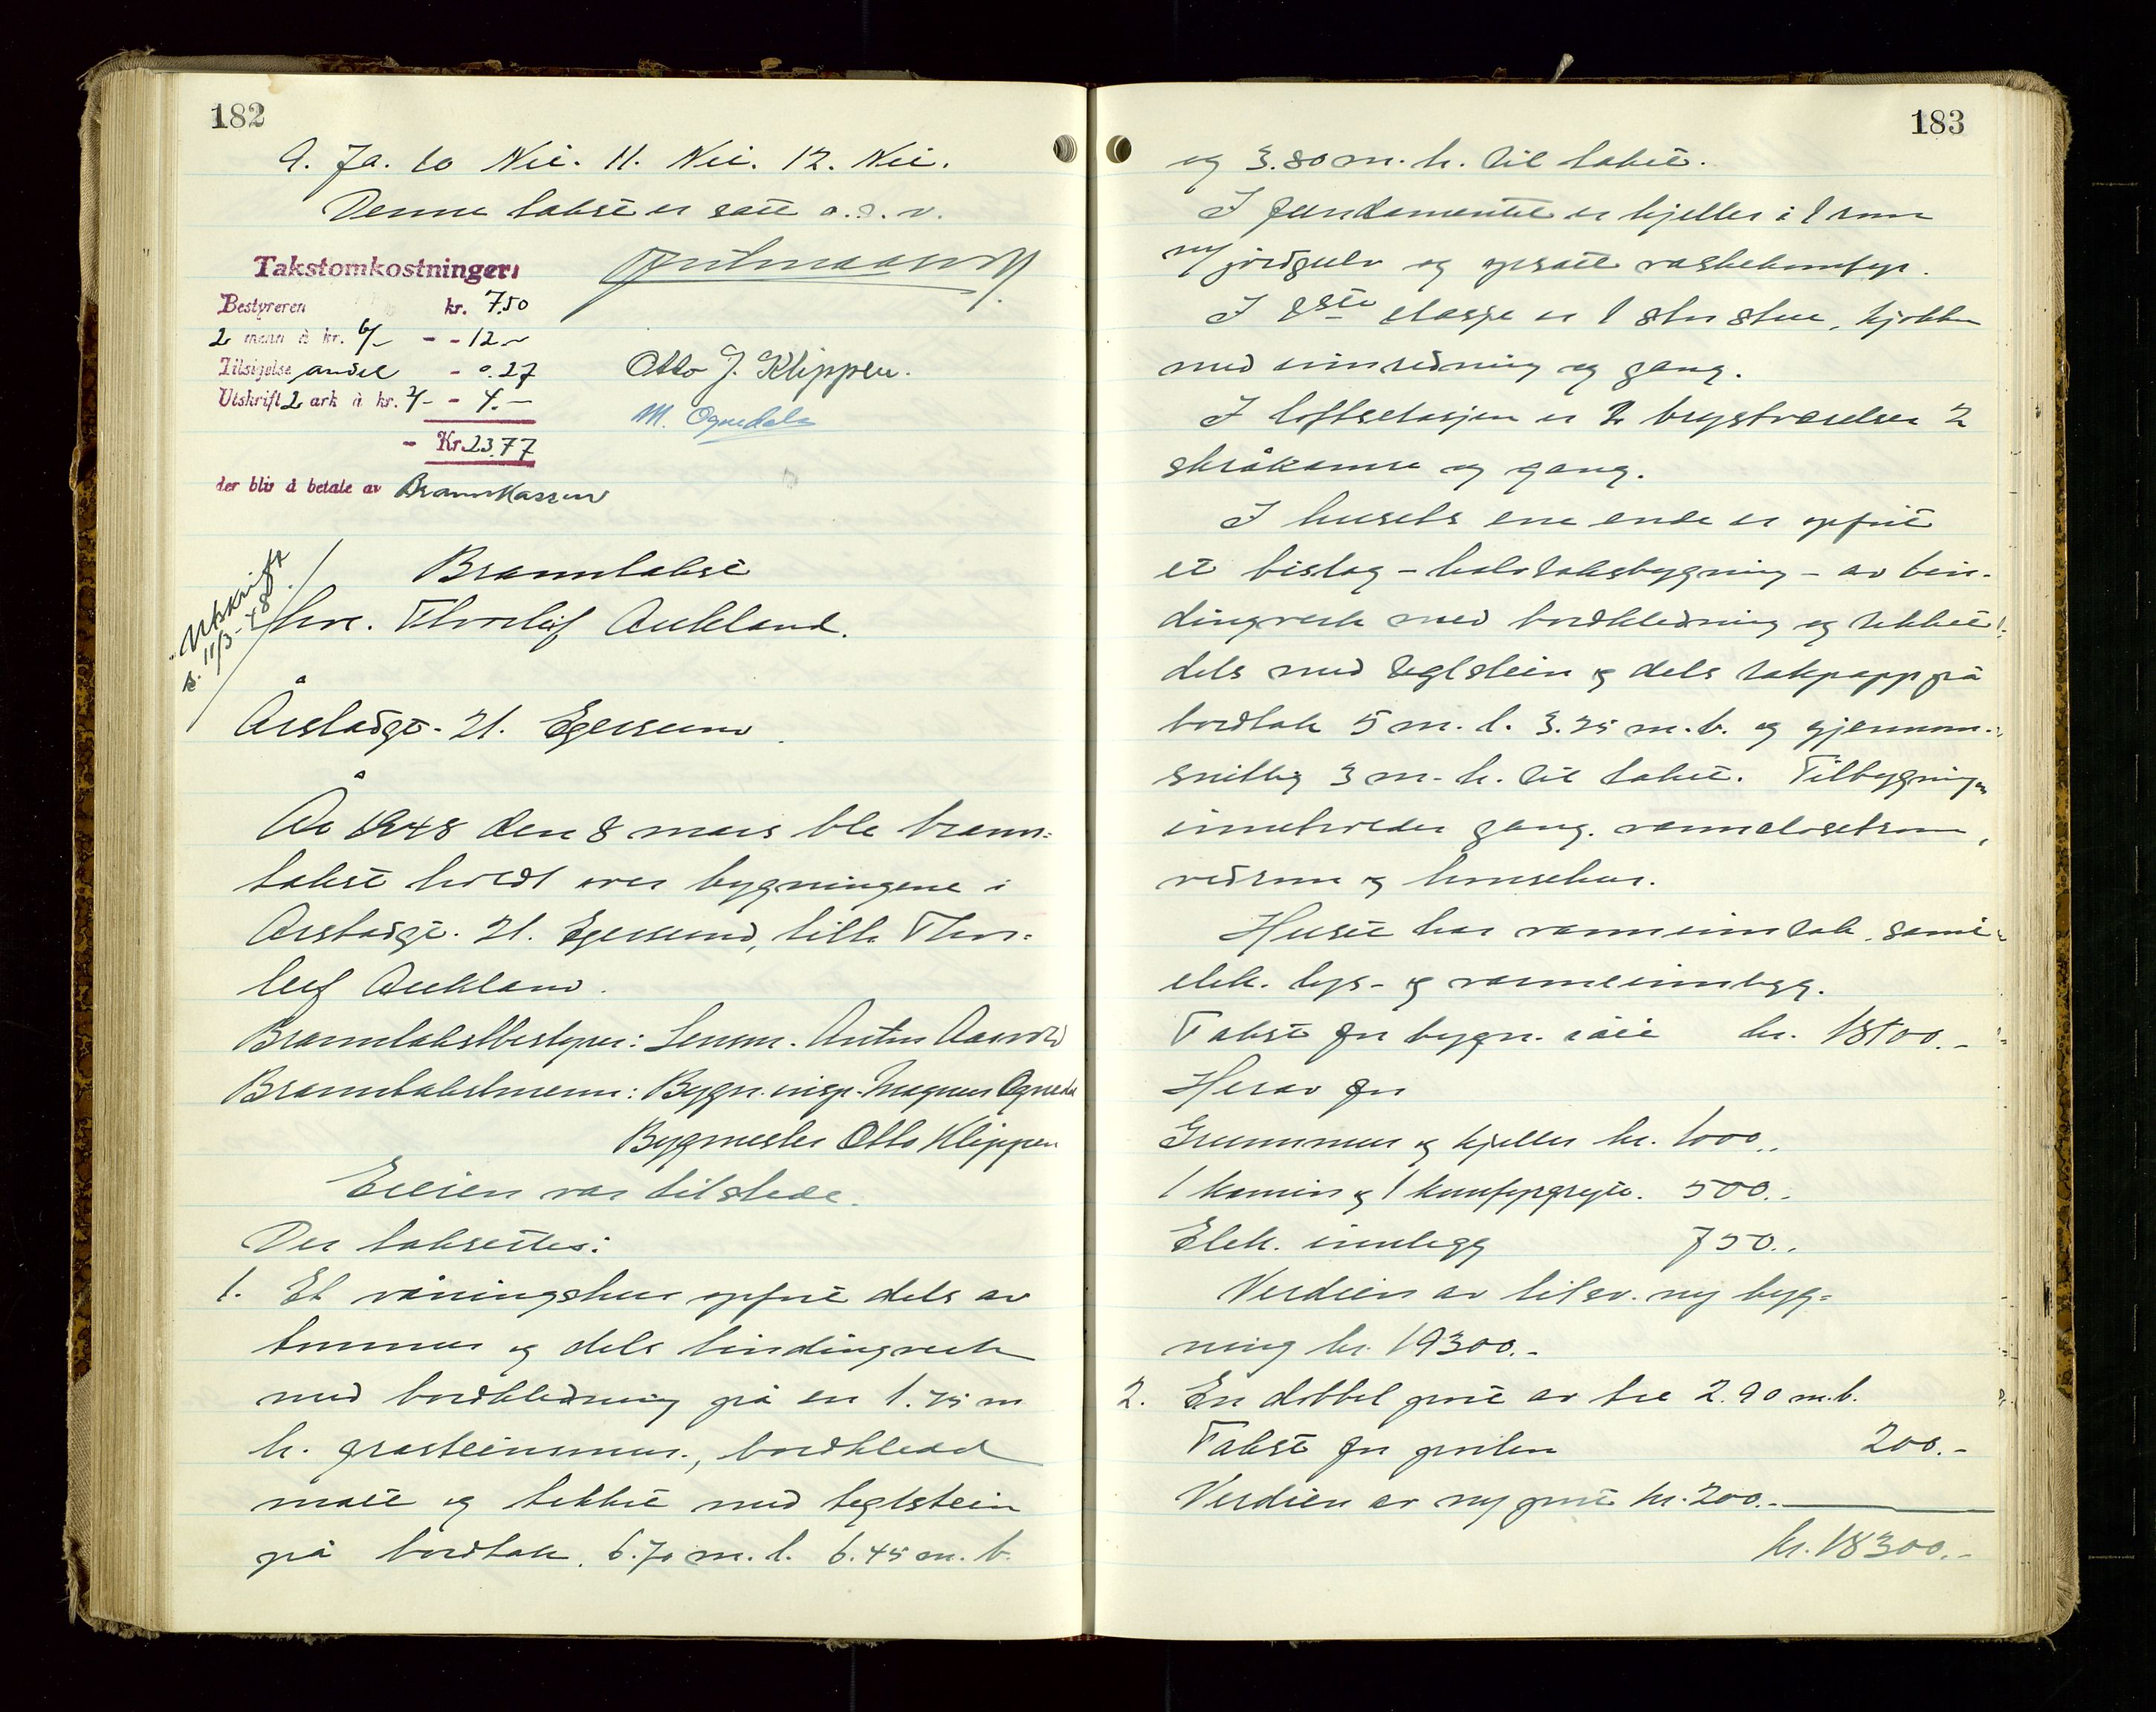 182
9. Ja. 10 Nei. 11. Nei. 12. Nei.
Denne takst er satt o. s. v.
Takstomkostninger:
Bestyreren kr. 7.50
2 menn à kr. 6/- - - 12.-
Tilsigelse andel - 0.27
Utskrift 2 ark à kr. 2/- - 4.-
- Kr. 23.77
der blir å betale av Brannkassen
Otto J. Klippen.
M. Ognedal
Utskrift
s. 11/3-48.
Branntakst
hos. Thorleif Aukland.
Årstadgt. 21. Egersund.
År 1948 den 8 mars ble brann-
takst holdt over bygningene i
Årstadgt. 21. Egersund, tilh. Thor-
leif Aukland.
Branntakstbestyrer: Lensm. Anton Aasvold
Branntakstmenn: Bygn. insp. Magnus Ognedal
Bygmester Otto Klippen
Eieren var tilstede.
Der taksertes:
1. Et våningshus opført dels av
tømmer og dels bindingverk
med bordkledning på en 1.75 m
h. gråsteinsmur, bordkledd
malt og tekket med teglstein
på bordtak. 6.70 m. l. 6.45 m. b.
183
og 3.80 m. h. til taket.
I fundamentet er kjeller i 1 rum
m/ jordgulv og opsatt vaskekomfyr.
I 1ste etasje er 1 stor stue, kjøkken
med innredning og gang.
I loftsetasjen er 2 brystværelser 2
skråkamre og gang.
I husets ene ende er opført
et bislag - halvtaksbygning - av bin-
dingverk med bordkledning og tekket
dels med teglstein og dels takpapp på
bordtak 5 m. l. 3.25 m. b. og gjennom-
snittlig 3 m. h. til taket. Tilbygningen
inneholder gang. vannclosetrom,
vedrom og hønsehus.
Huset har vanninntak, samt
elek. lys- og varmeinnlegg.
Takst for bygn. i alt kr. 18100.-
Herav for
Grunnmur og kjeller kr. 1000.-
1 kamin og 1 komfyrgryte. 500.-
Elek. innlegg 750.-
Verdien av tilsv. ny byg-
ning kr. 19300.-
2. En dobbel port av tre 2.90 m. b.
Takst for porten 200.-
Verdien av ny port kr. 200.-
kr. 18300.-